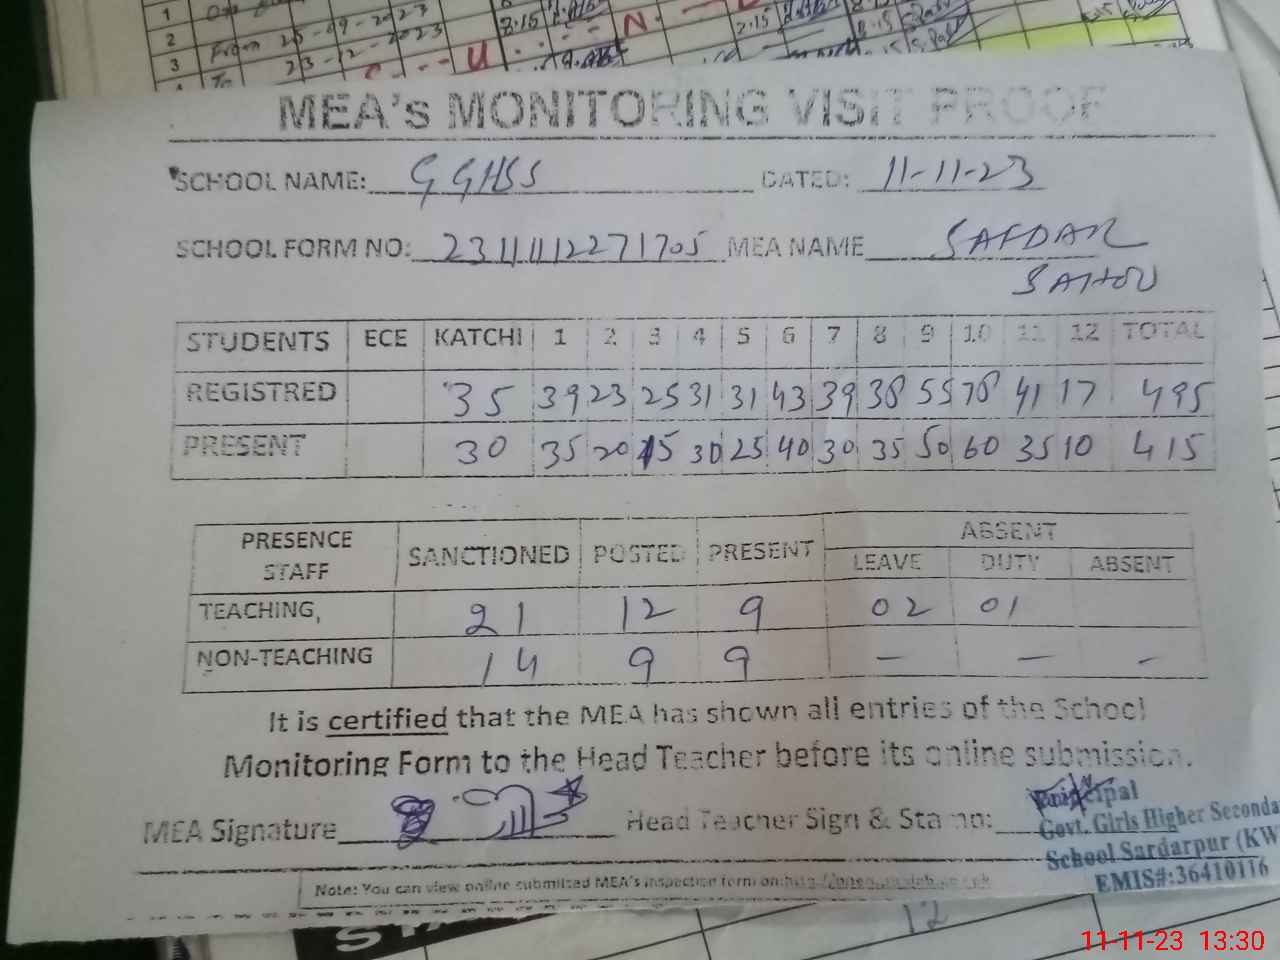 1
2 From 25-09-2023 8.15
3 To 23-12-2023 U N
MEA's MONITORING VISIT PROOF
SCHOOL NAME: GGHSS DATED: 11-11-23
SCHOOL FORM NO: MEA NAME SAFDAR
STUDENTS ECE KATCHI 1 2 3 4 5 6 7 8 9 10 11 12 TOTAL
REGISTRED 35 39 23 25 31 31 43 39 38 55 78 41 17 495
PRESENT 30 35 20 15 30 25 40 30 35 50 60 35 10 415
PRESENCE STAFF SANCTIONED POSTED PRESENT ABSENT
LEAVE DUTY ABSENT
TEACHING, 21 12 9 02 01
NON-TEACHING 14 9 9 — — -
It is certified that the MEA has shown all entries of the School
Monitoring Form to the Head Teacher before its online submission.
MEA Signature Head Teacher Sign & Stamp:
Principal
Govt. Girls Higher Seconda
School Sardarpur (KW
EMIS#:36410116
Note: You can view online submitted MEA's inspection form on:
12
11-11-23 13:30